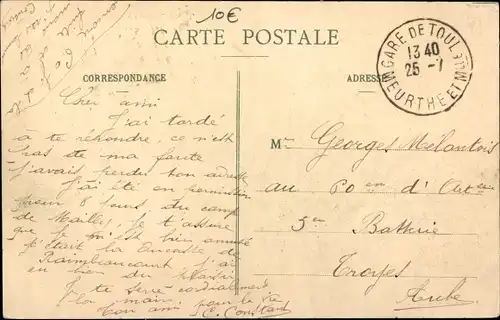 10€
CARTE POSTALE
CORRESPONDANCE
ADRESSE
GARE DE TOUL
13 40
25 - 7
MEURTHE ET M
Cher ami
J'ai tardé
a te répondre, ce n'est
pas de ma faute
j'avais perdu ton adresse
J'ai été en permission
8 jours du camp
de Mailly, Je t'assure
que je m'y suis bien amusé
c'était la ducasse de
Raimbeaucourt J'ai
eu bien du plaisir
Je te serre cordialement
la main.
Ton ami pour la vie
E. Constant
Mr Georges Mélantois
au 60 em d'
5 em Batterie
Troyes
Aube